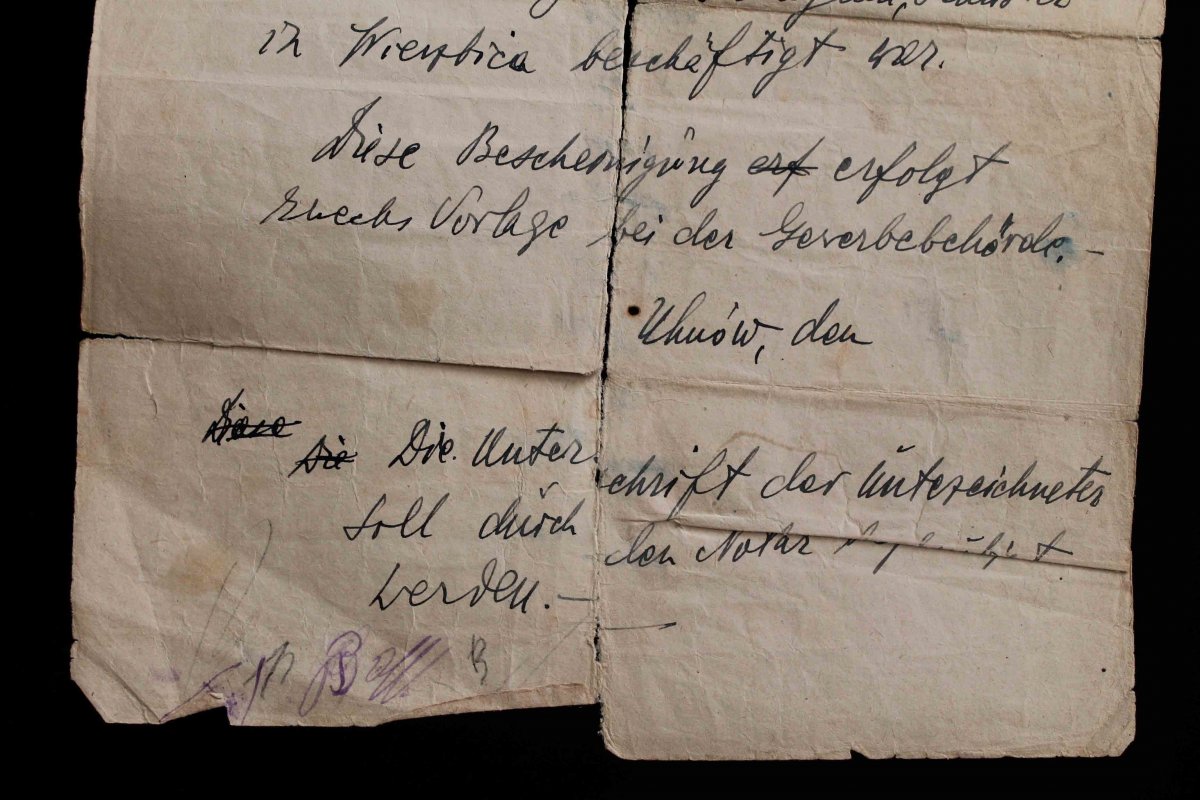 in Wierzbica beschäftigt war.
Diese Bescheinigung erf erfolgt
zwecks Vorlage bei der Gewerbebehörde.—
Uhnów, den
Diese
Die Die Unterschrift der Unterzeichneten
soll durch den Notar
werden.—